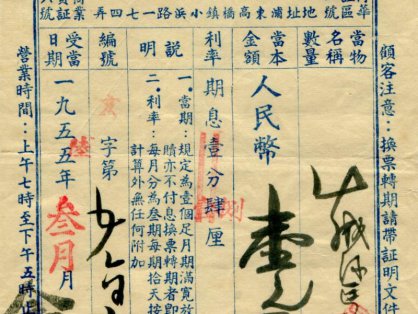 地址浦東高橋鎮小浜路一七四弄
顧客注意：換票轉期請帶証明文件
當物名稱
數量
當本金額
人民幣
壹元
利率
期息壹分肆厘
說明
一・當期：規定為壹個足月期滿寬放
贖亦不付息換票轉期者即
二・利率：每月分為叁期每期拾天按
計算外無任何附加
編號
字第
受當日期
一九五五年叁月月
陸
營業時間：上午七時至下午五時止